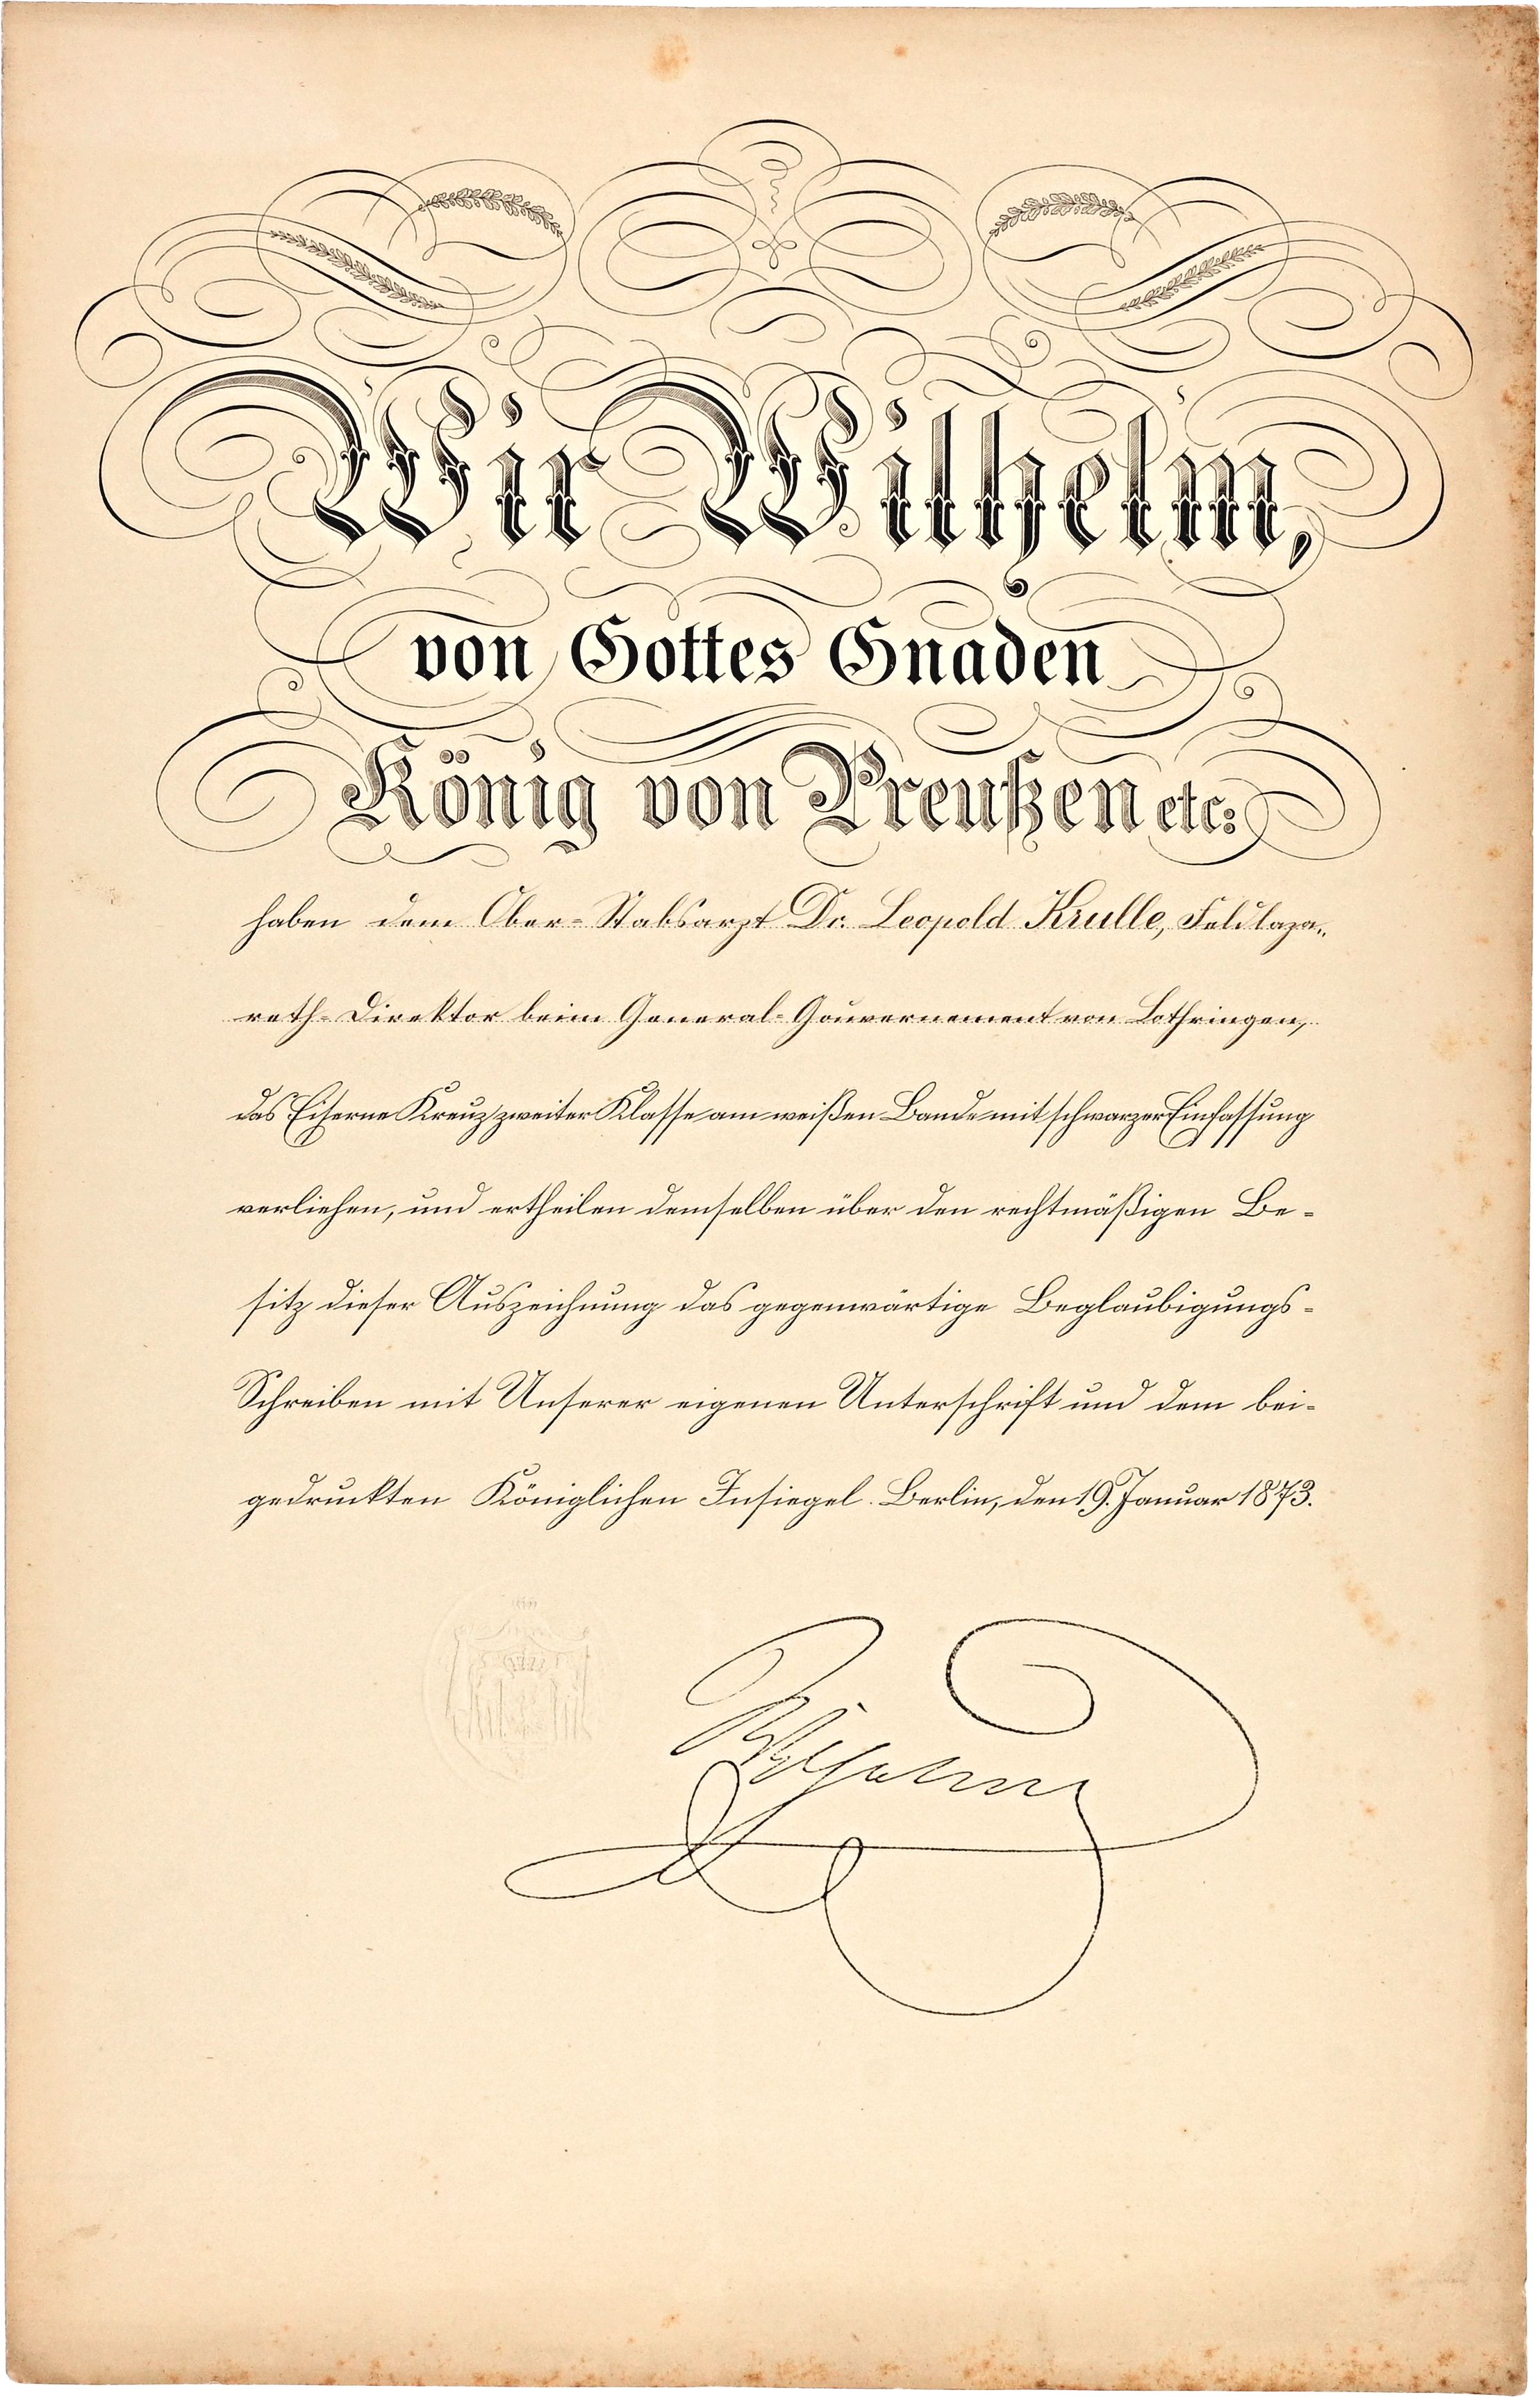 Wir Wilhelm,
von Gottes Gnaden
König von Preußen etc:
haben dem Ober-Stabsarzt Dr. Leopold Krulle, Feldlaza-
reth-Direktor beim General-Gouvernement von Lothringen,
das Eiserne Kreuz zweiter Klasse am weißen Bande mit schwarzer Einfassung
verliehen, und ertheilen demselben über den rechtmäßigen Be-
sitz dieser Auszeichnung das gegenwärtige Beglaubigungs-
Schreiben mit Unserer eigenen Unterschrift und dem bei-
gedruckten Königlichen Insiegel. Berlin, den 19. Januar 1873.
Wilhelm